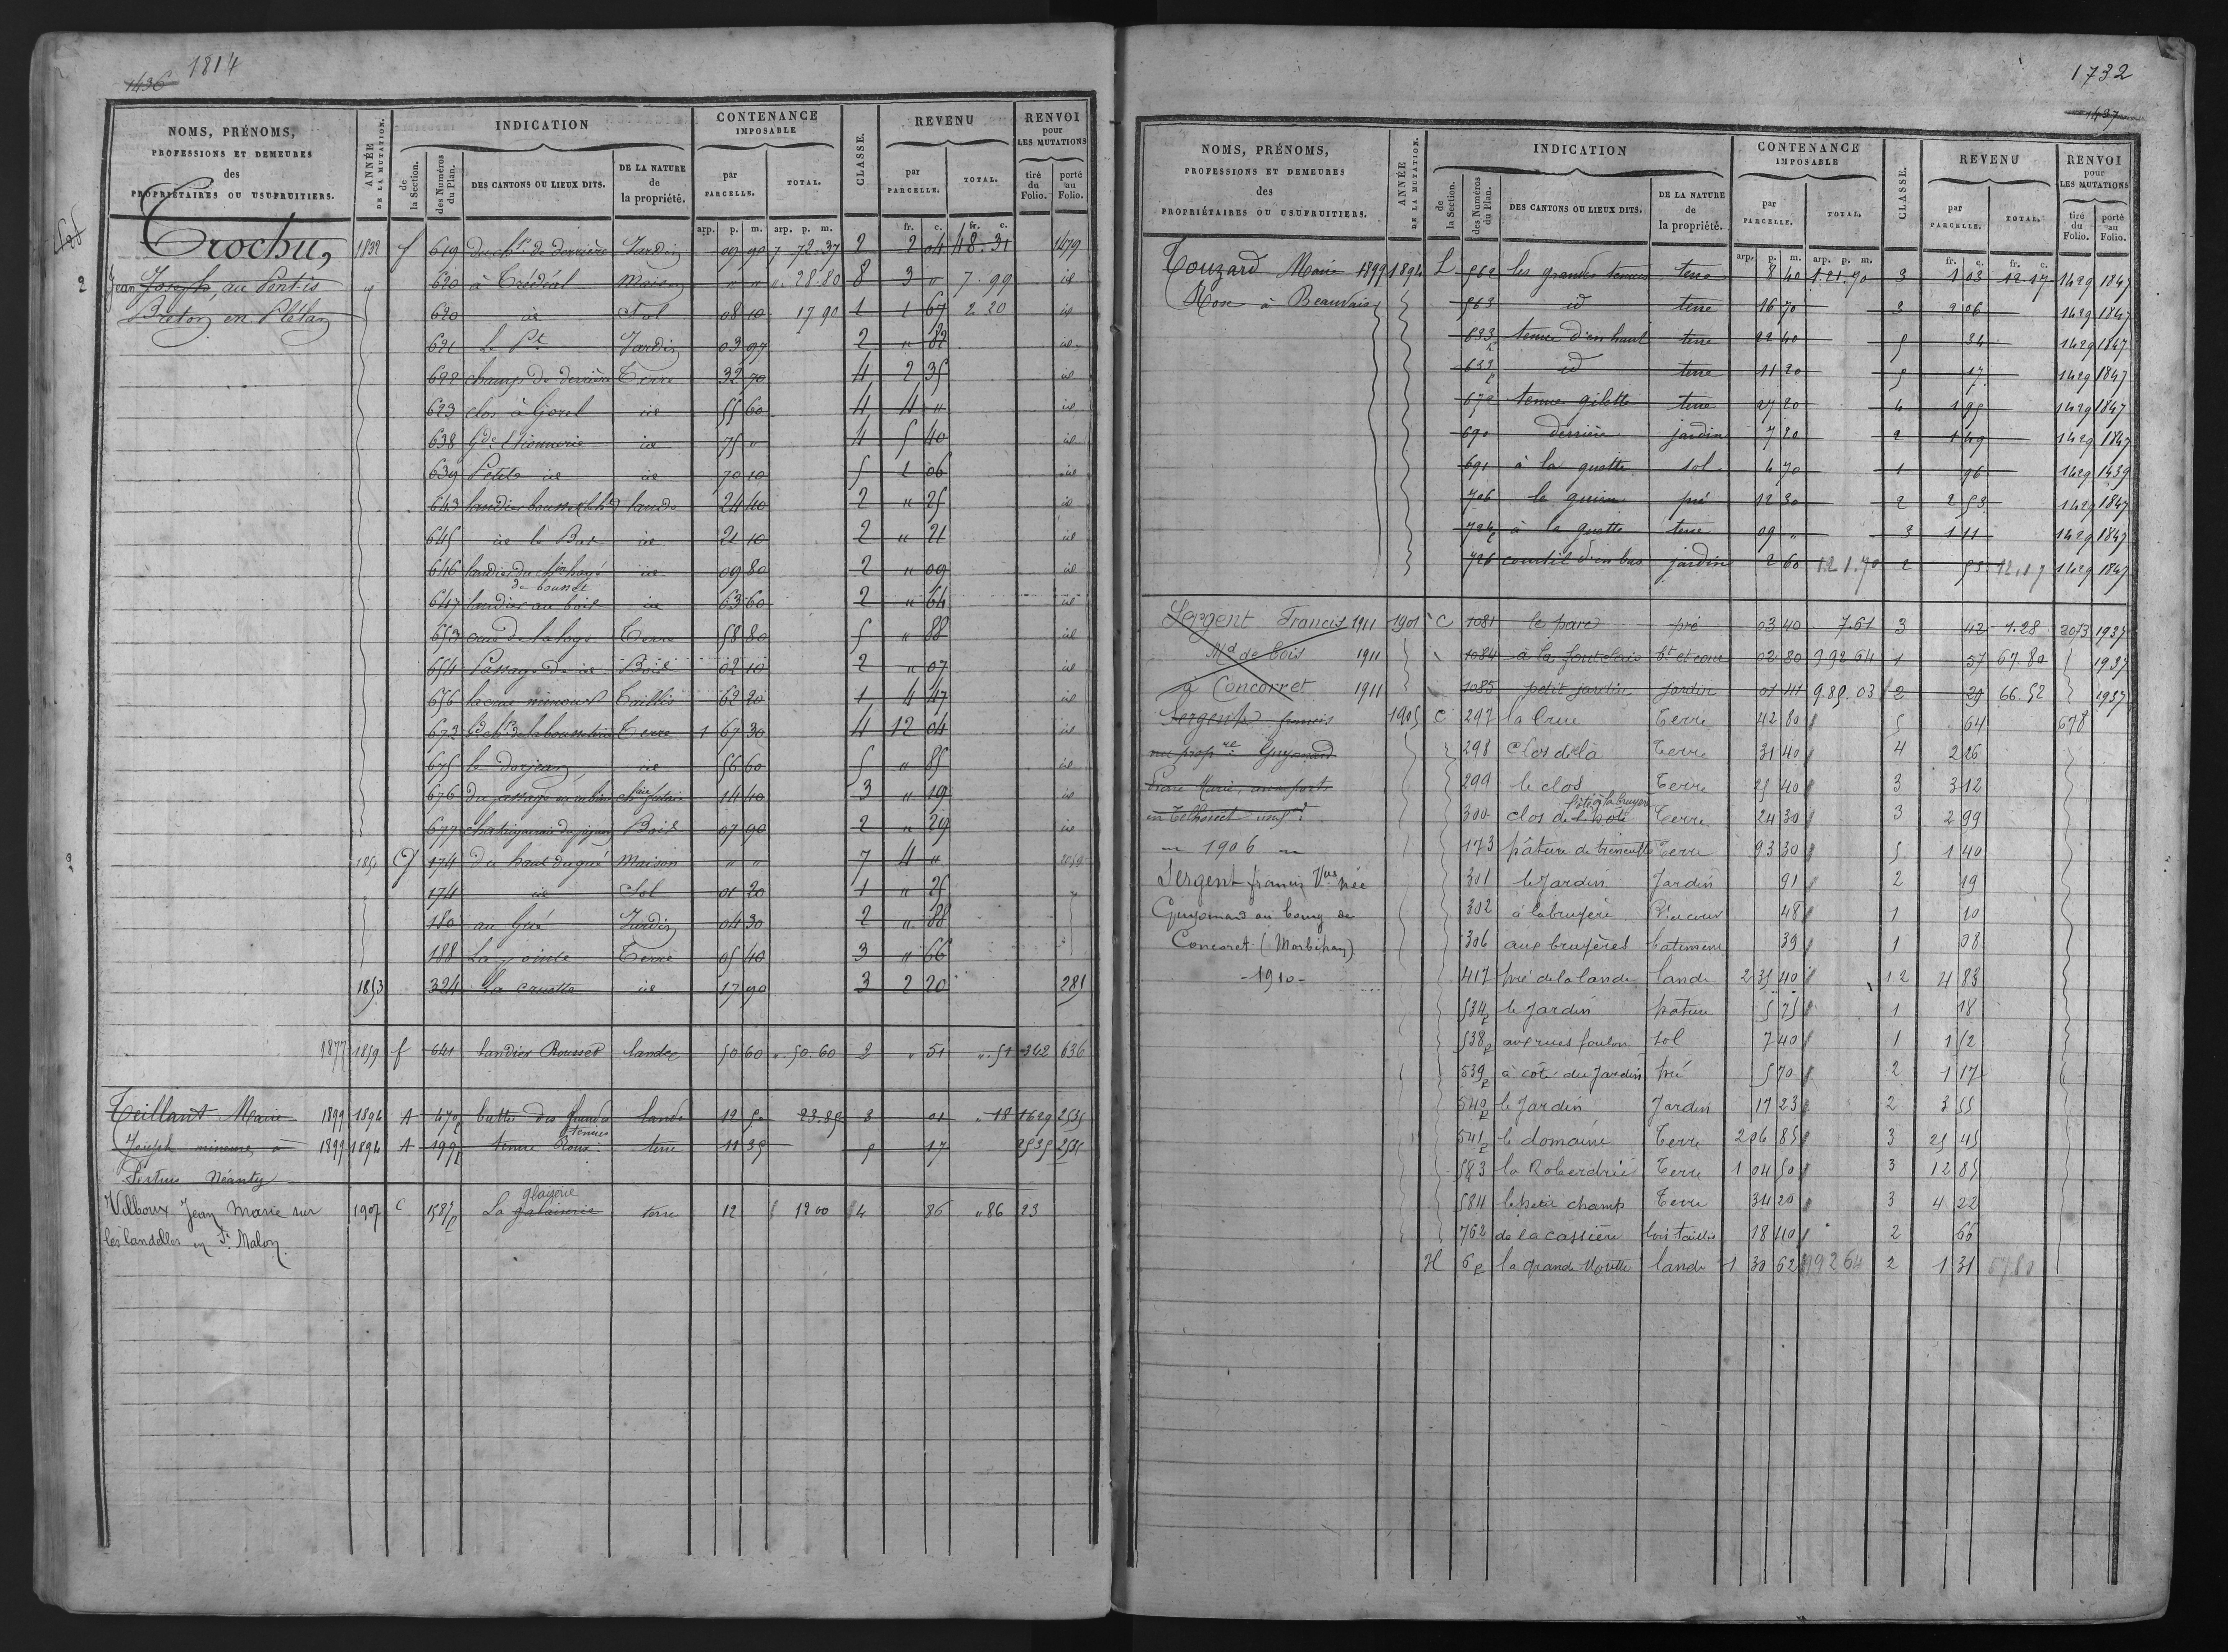 1814
1436
NOMS, PRÉNOMS, PROFESSIONS ET DEMEURES des PROPRIÉTAIRES OU USUFRUITIERS.
ANNÉE DE LA MUTATION.
INDICATION
de la Section.
des Numéros du Plan.
DES CANTONS OU LIEUX DITS.
DE LA NATURE de la propriété.
CONTENANCE IMPOSABLE
par PARCELLE.
TOTAL.
CLASSE.
REVENU
par PARCELLE.
TOTAL.
RENVOI pour LES MUTATIONS
tiré du Folio.
porté au Folio.
arp. p. m. arp. p. m. fr. c. fr. c.
Trochu, 1832 f 619 de derrière Jardin 09 90 7 72.37 2 2 04 48.31 1479
Jean Joseph, au Pont-is 620 à Trédéal Maison " " 28.80 8 3 " 7.99 id
Baton en Plélan 620 id Sol 08 10 17 90 1 1 67 2 20 id
621 Le Pt Jardin 03 97 2 " 82 id
622 champ de derrière Terre 32 70 4 2 35 id
623 clos à Gorel id 55 60 4 4 " id
638 Gde id 75 " 4 5 40 id
639 Petite id id 70 10 5 1 06 id
643 lande 24 40 2 " 25 id
645 id le Bas id 21 10 2 " 21 id
646 id 09 80 2 " 09 id
647 landier au bois id 63 60 2 " 64 id
653 de la haye Terre 58 80 5 " 88 id
654 Passage de id Bois 02 10 2 " 07 id
656 Taillis 62 20 1 4 47 id
673 Terre 1 67 30 4 12 04 id
675 le dorjean id 56 60 5 " 85 id
676 du passage 14 40 3 " 19 id
677 Bois 07 90 2 " 29 id
1851 G 174 du haut du gué Maison " " 7 4 "
174 id Sol 01 20 1 " 25
180 au Gué Jardin 04 30 2 " 88
188 La pointe Terre 05 40 3 " 66
1853 324 La cruotte id 17 90 3 2 20 281
1877 1859 f 641 landier Rousset landes 50 60 ". 50.60 2 " 51 ". 51 362 636
Teillant Marie 1899 1894 A 470p buttes des grandes tenues lande 12 50 23.85 3 01 " 18 1629 2535
Joseph mineure, à 1899 1894 A 199p tenue Roux terre 11 35 5 17 2535 2535
Pertuis Néanty
Vilboux Jean Marie sur 1907 C 1587p La galaiserie glagerie terre 12 12 00 4 86 " 86 23
les landelles en St Malon.
1732
1437
NOMS, PRÉNOMS, PROFESSIONS ET DEMEURES des PROPRIÉTAIRES OU USUFRUITIERS.
ANNÉE DE LA MUTATION.
INDICATION
de la Section.
des Numéros du Plan.
DES CANTONS OU LIEUX DITS.
DE LA NATURE de la propriété.
CONTENANCE IMPOSABLE
par PARCELLE.
TOTAL.
CLASSE.
REVENU
par PARCELLE.
TOTAL.
RENVOI pour LES MUTATIONS
tiré du Folio.
porté au Folio.
arp. p. m. arp. p. m. fr. c. fr. c.
Touzard Marie 1899 1894 L 562 les grandes tenues terre 8 40 1.21.70 3 1 03 12.17 1429 1847
Rose à Beauvais 563 id terre 16 70 3 2 06 1429 1847
633p tenue d'en haut terre 22 40 5 34 1429 1847
633p id terre 11 20 5 17 1429 1847
672 tenue gilette terre 27 20 4 1 95 1429 1847
690 derrière jardin 7 20 2 1 49 1429 1847
691 à la guette sol 4 70 1 96 1429 1439
706 le pré 12 30 2 2 53 1429 1847
724p à la guette terre 09 " 3 1 11 1429 1847
726 courtil d'en bas jardin 2 60 1.21.70 2 53 12,17 1429 1847
Sergent Francis 1911 1901 C 1081 le parc pré 03 40 7.61 3 42 1.28 2013 1937
Md de bois 1911 1084 à la bt et cour 02 80 9 92 64 1 57 67.80 1937
à Concorret 1911 1085 petit jardin jardin 01 41 9.85.03 2 29 66.52 1937
Sergent francis 1905 C 297 la Crue Terre 42 80 5 64 678
nu propre Guyomard 298 Clos de là Terre 31 40 4 2 26
Pierre Marie, aux forts 299 le clos Terre 25 40 3 3 12
en Telhouet 300 clos de Terre 24 30 3 2 99
1906 173 pâture de Terre 93 30 5 1 40
Sergent francis Vve née 301 le Jardin Jardin 91 2 19
Guyomard au bourg de 302 à la bruyère Bt et cour 48 1 10
Concoret (Morbihan) 306 aux bruyères batiment 39 1 08
- 1910 - 417 pré de la lande lande 2 35 40 1 2 4 83
534p le Jardin pâture 5 75 1 18
538p aux rues foulon sol 7 40 1 1 52
539p à côté du Jardin pré 5 70 2 1 17
540p le Jardin Jardin 17 23 2 3 55
541p le domaine Terre 2 06 85 3 25 45
583 la Roberdrie Terre 1 04 50 3 12 85
584 le petit champ Terre 34 20 3 4 22
762 de la cassière bois taillis 18 40 2 66
H 6p la grande Moutte lande 1 30 62 992 64 2 1 31 67 80